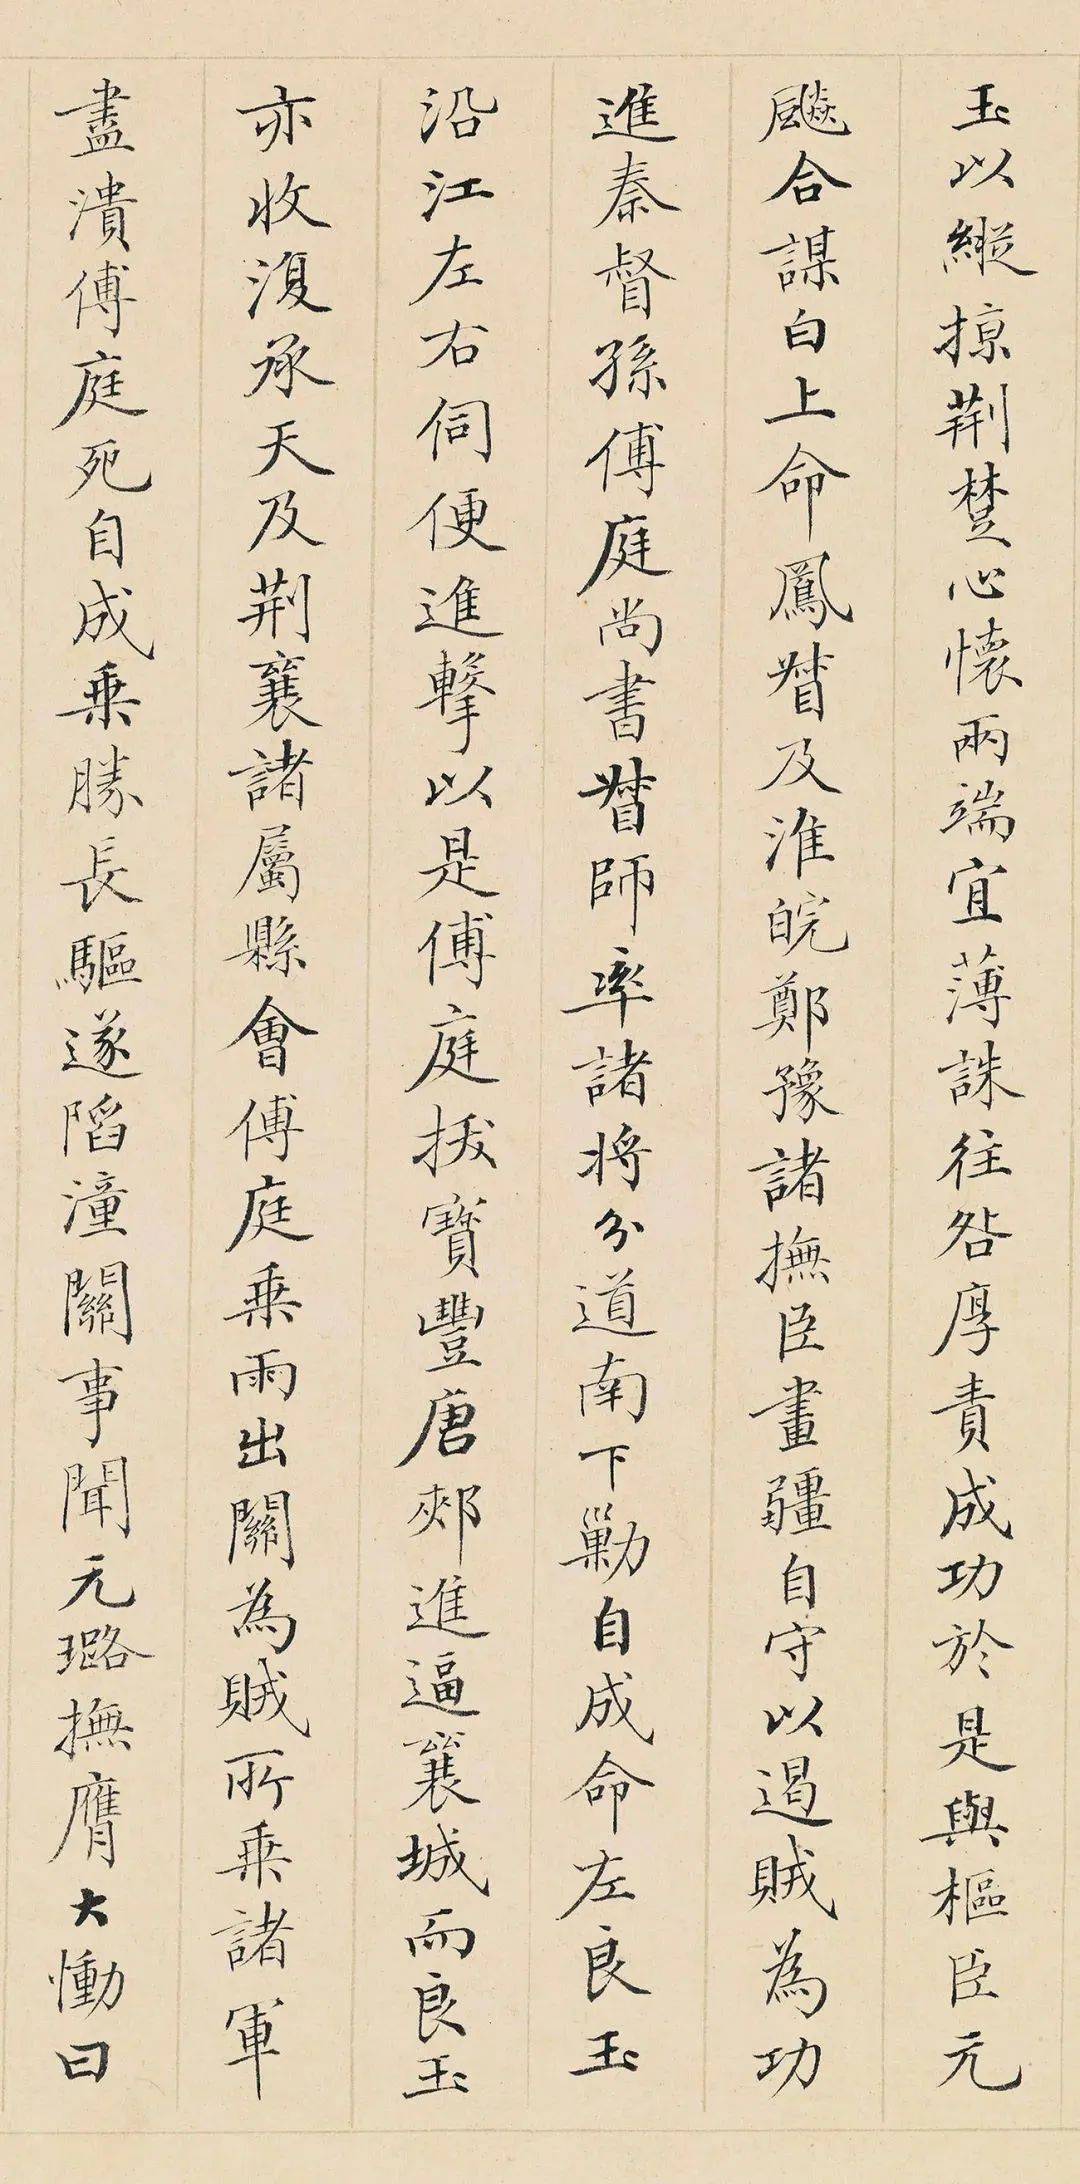 玉以縱掠荆楚心懷兩端宜薄誅往咎厚責成功於是與樞臣元
飈合謀白上命鳳督及淮皖鄭豫諸撫臣畫疆自守以遏賊為功
進秦督孫傅庭尚書督師率諸將分道南下勦自成命左良玉
沿江左右伺便進擊以是傅庭拔寶豐唐郟進逼襄城而良玉
亦收復承天及荆襄諸屬縣會傅庭乗雨出關為賊所乗諸軍
盡潰傅庭死自成乗勝長驅遂陷潼關事聞元璐撫膺大慟曰